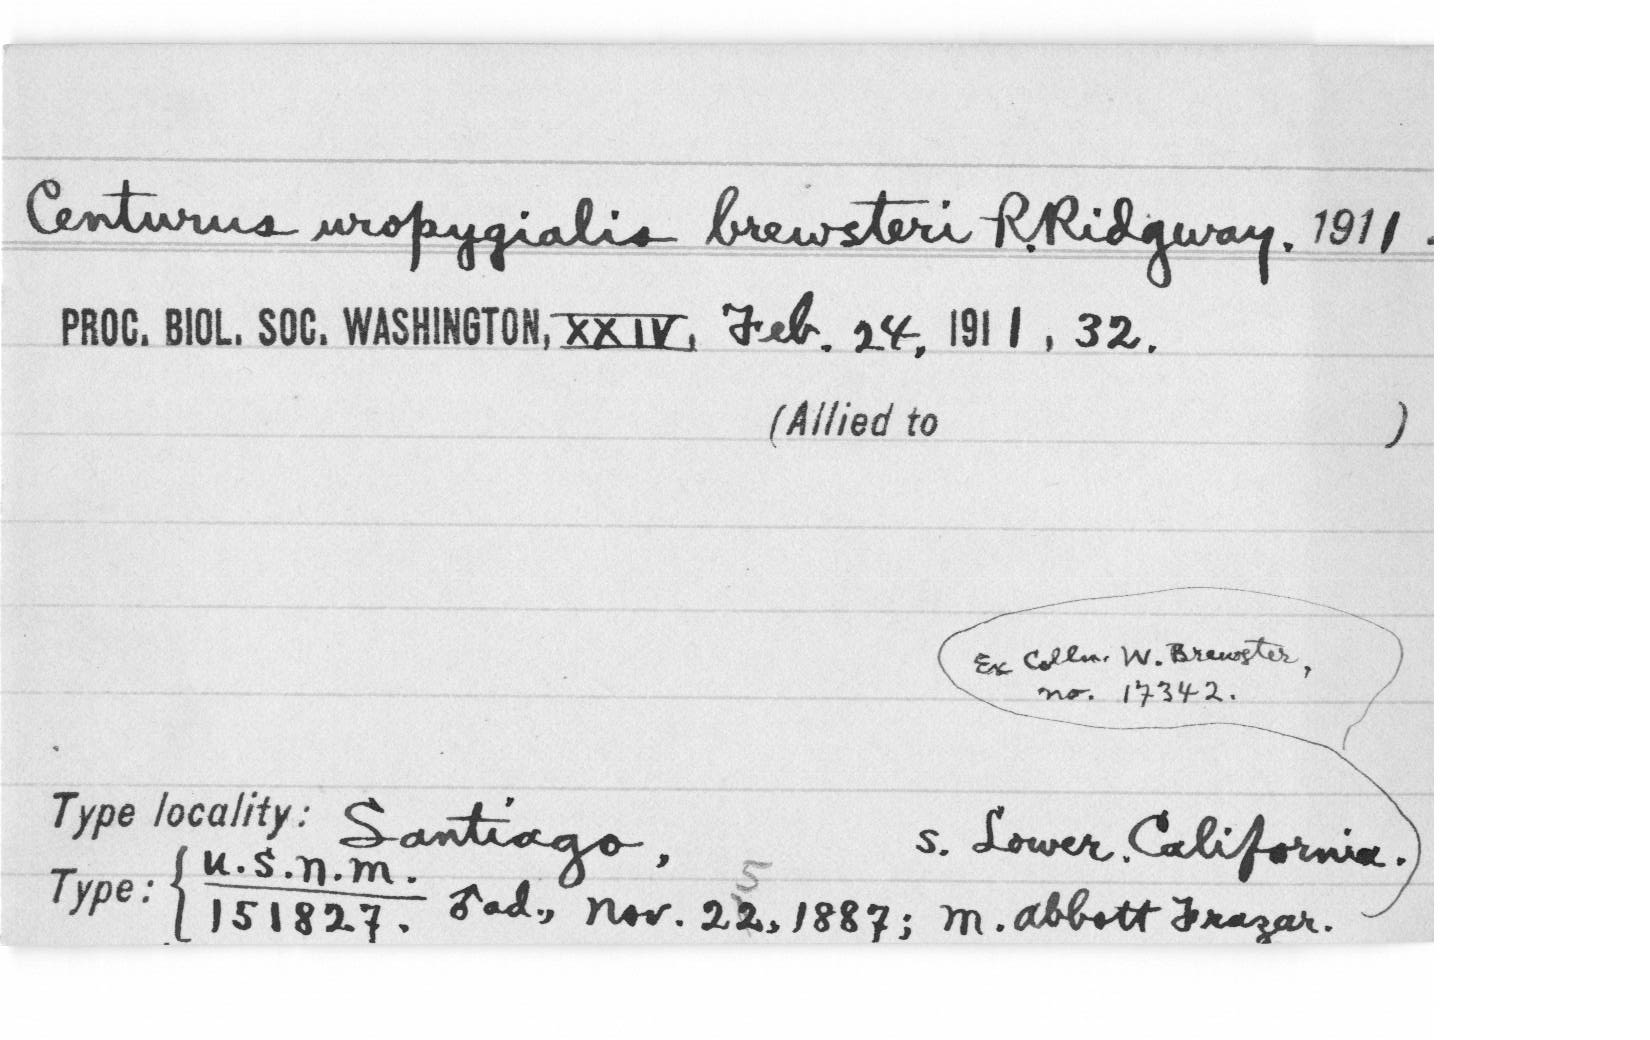 Centurus uropygialis brewsteri R. Ridgway. 1911.
PROC. BIOL. SOC. WASHINGTON, XXIV, Feb. 24, 1911, 32.
(Allied to )
Ex Colln. W. Brewster,
no. 17342.
Type locality: Santiago, s. Lower California.
Type: { U.S.N.M. 
151827. ♂ ad., Nov. 22, 1887; M. Abbott Frazar.
5